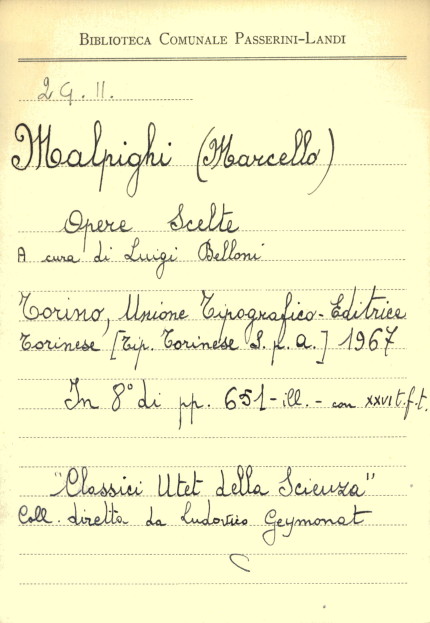 BIBLIOTECA COMUNALE PASSERINI-LANDI
2G.11.
Malpighi (Marcello)
Opere Scelte
A cura di Luigi Belloni
Torino, Unione Tipografico-Editrice
Torinese [Tip. Torinese S.p.a.] 1967
In 8° di pp. 651-ill. - con XXVI t.f.t.
"Classici Utet della Scienza"
Coll. diretta da Ludovico Geymonat